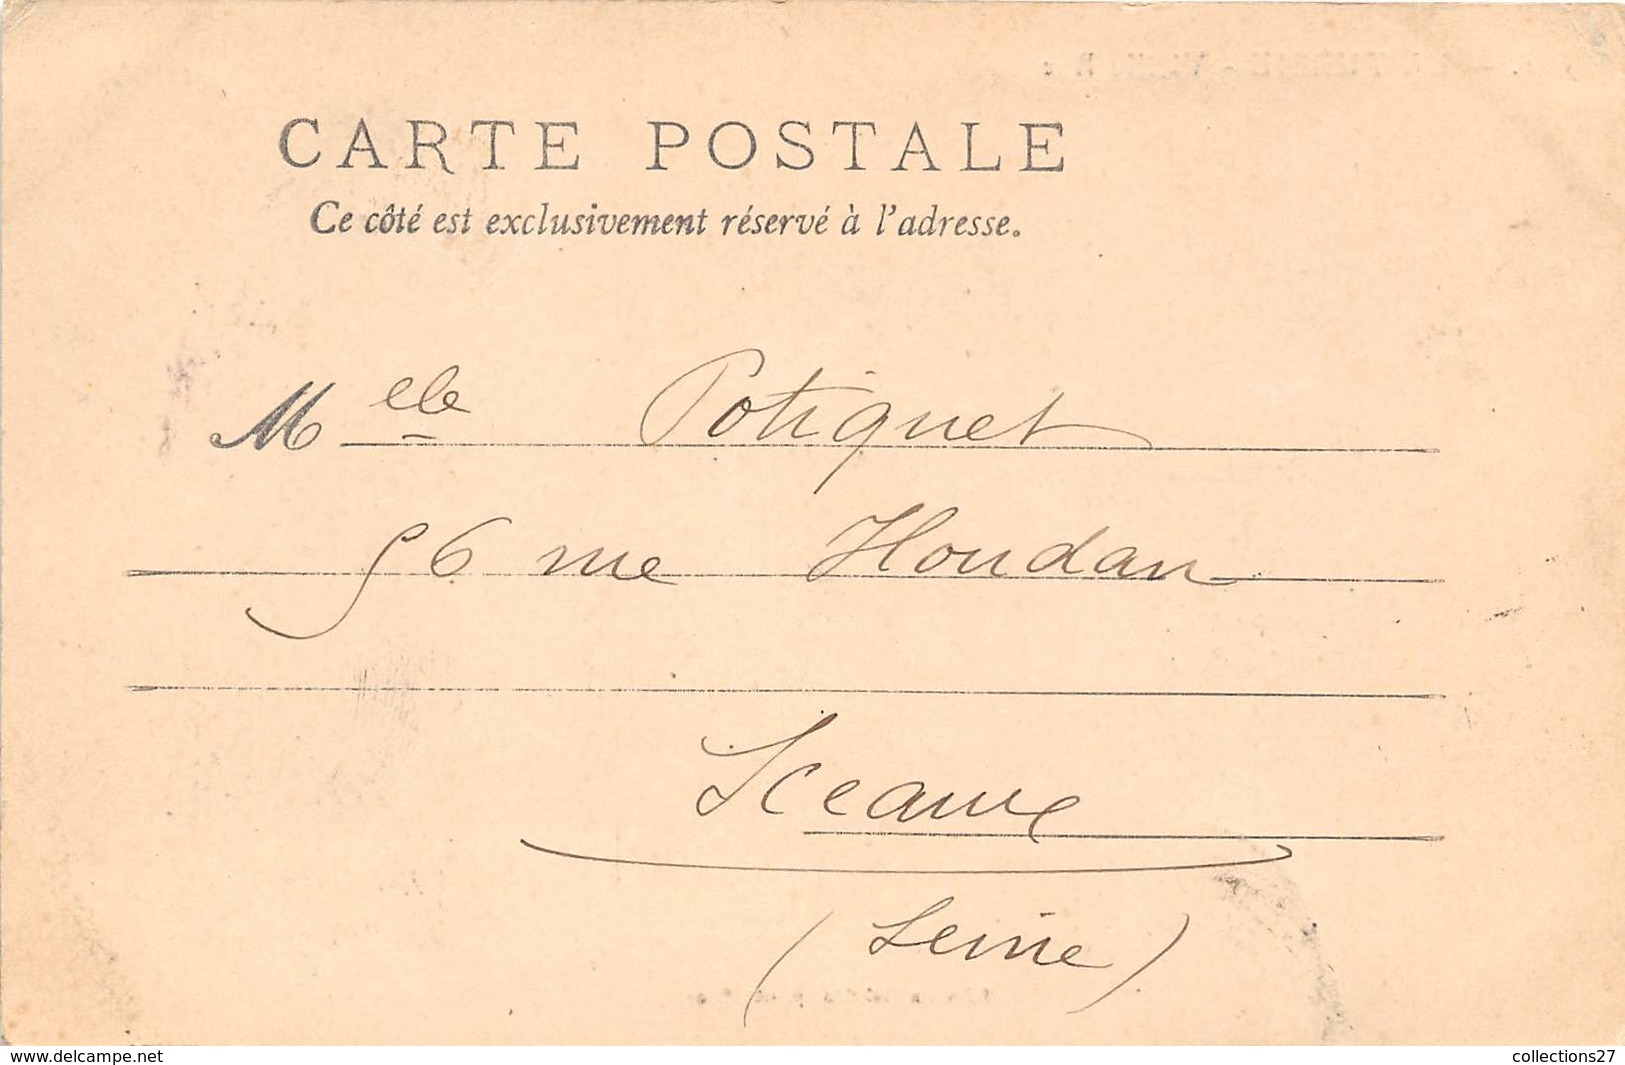 CARTE POSTALE
Ce côté est exclusivement réservé à l'adresse.
Melle Potiquet
56 rue Houdan
Sceaux
(Seine)
www.delcampe.net
collections27